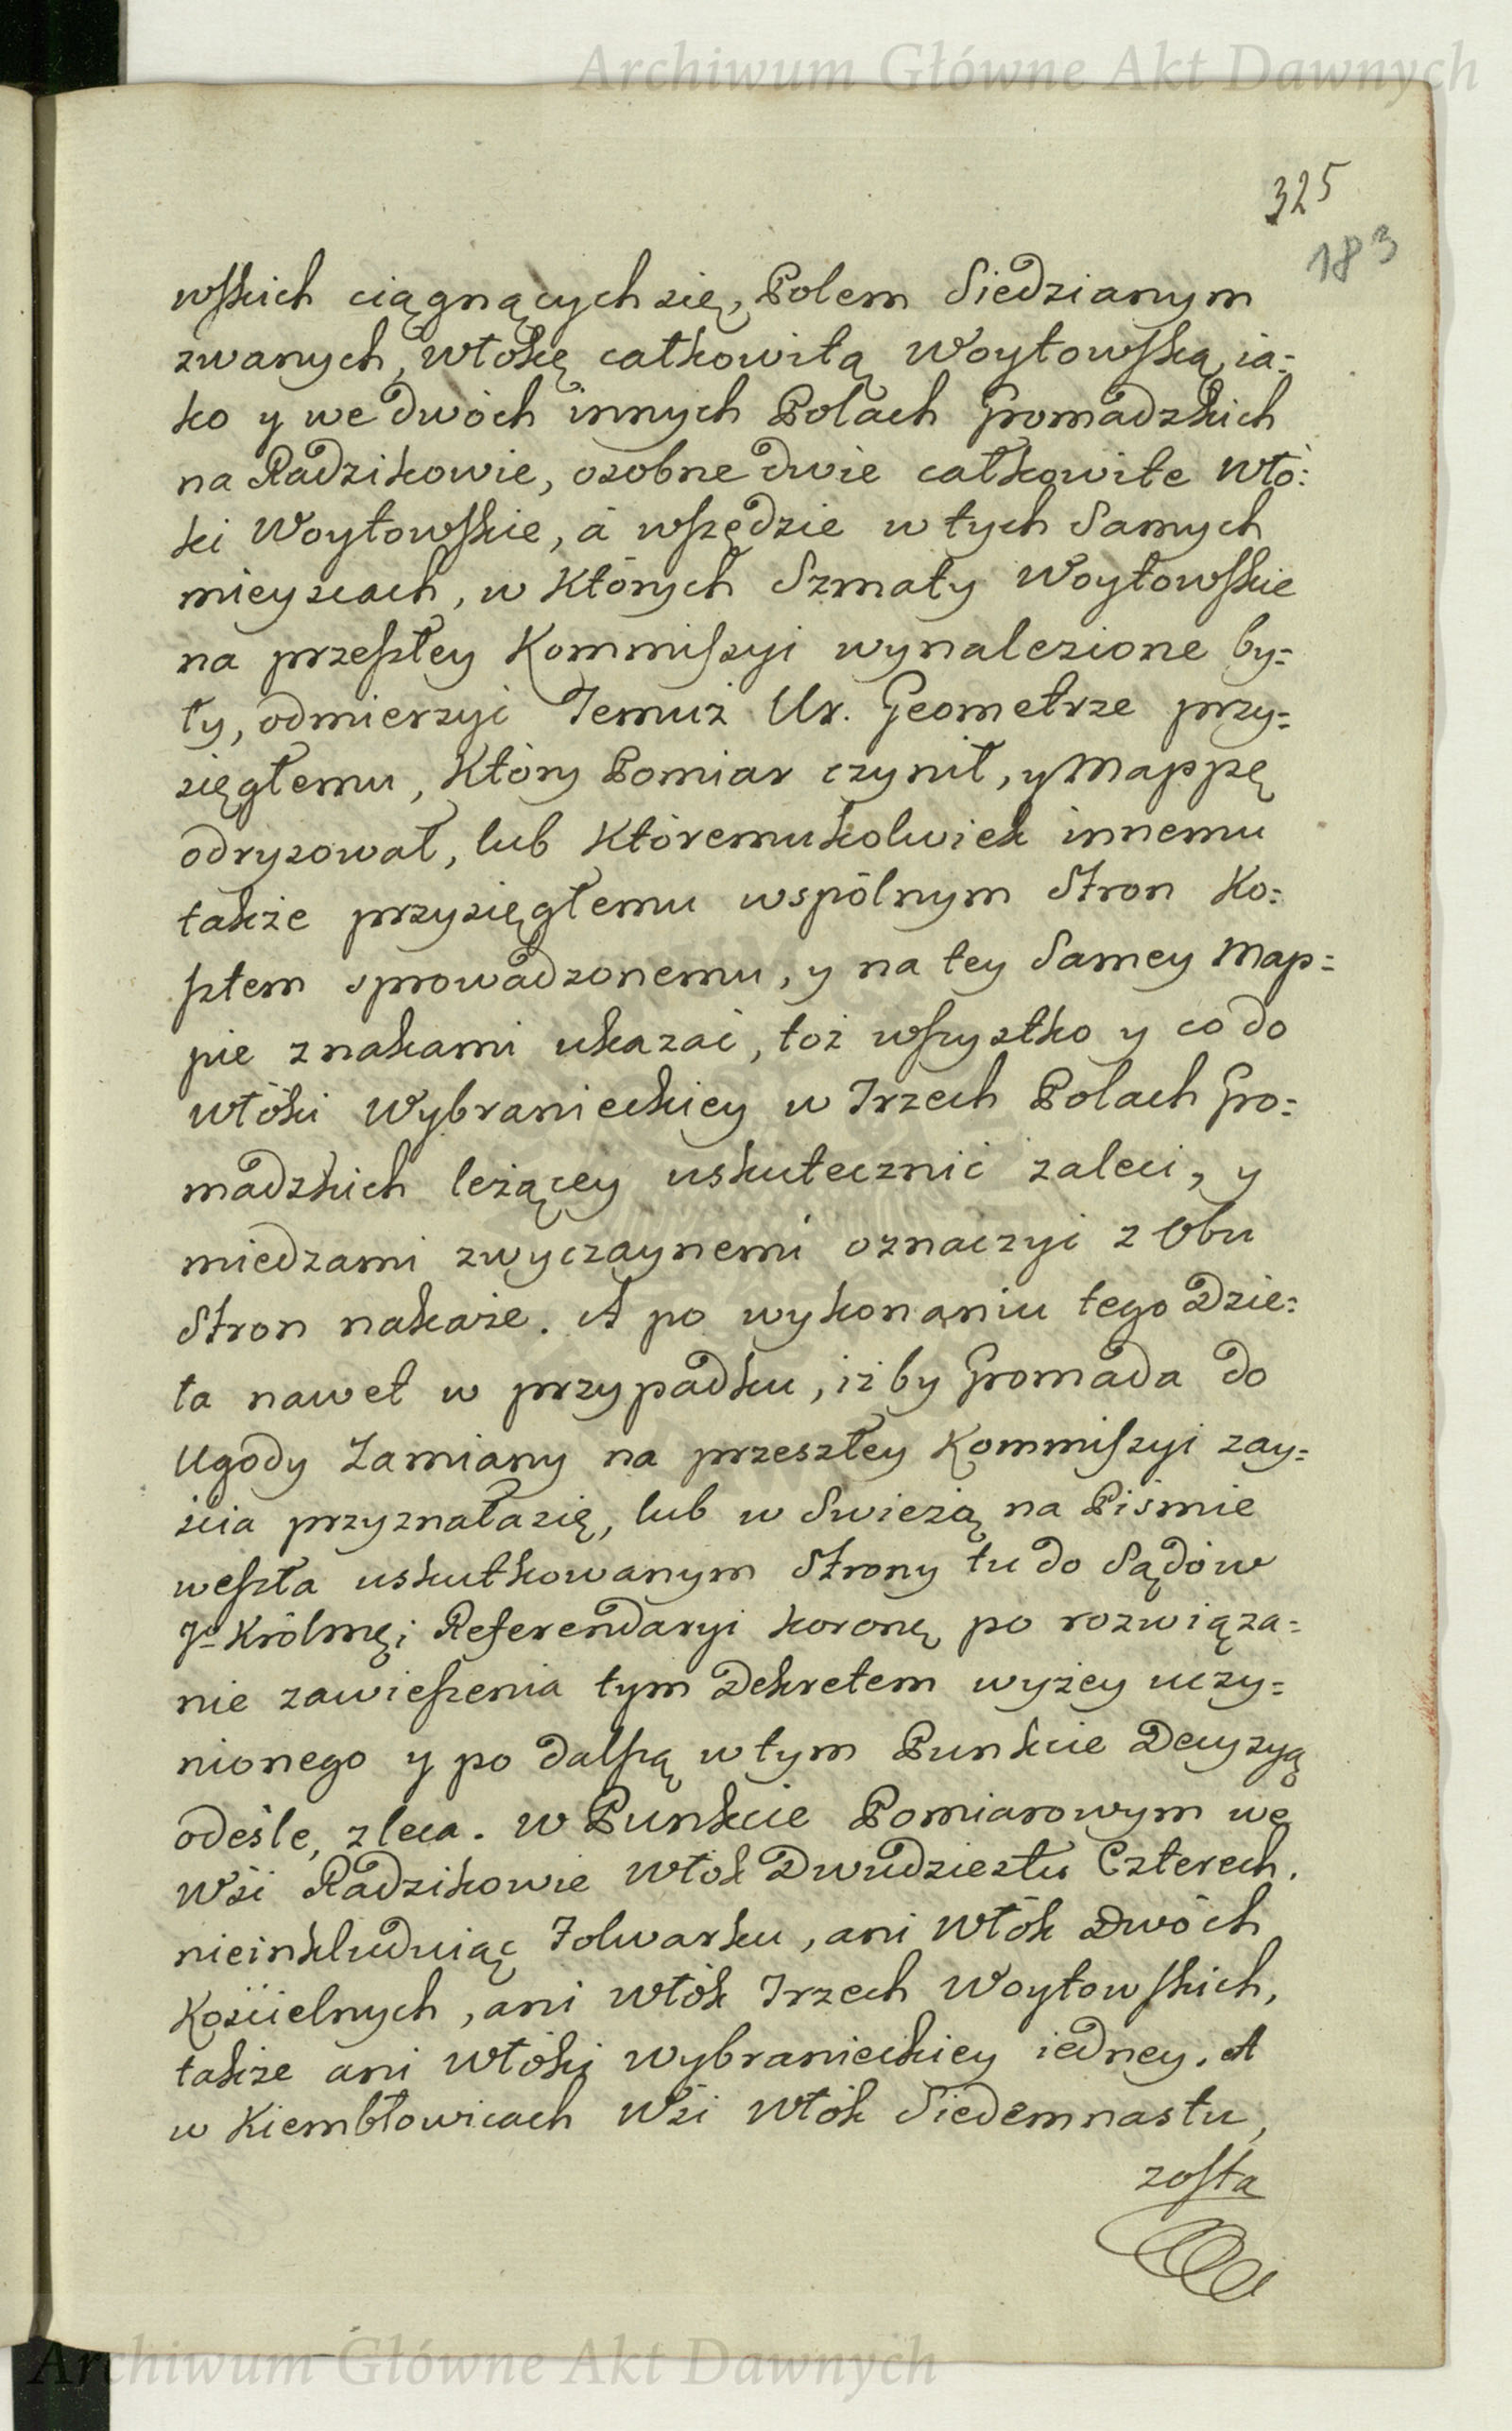 Archiwum Główne Akt Dawnych
325
183
wskich ciągnących się, Polem Siedzianym
zwanych, włokę całkowitą Woytowską, ia=
ko y we dwóch innych Polach Gromadzkich
na Radzikowie, osobne dwie całkowite Wło=
ki Woytowskie, á wszędzie w tych Samych
mieyscach, w których Szmaty Woytowskie
na przeszłey Kommissyi wynalezione by=
ły, odmierzyć Temuż Ur. Geometrze przy=
sięgłemu, który Pomiar czynił, y Mappę
odrysował, lub któremukolwiek innemu
także przysięgłemu wspólnym Stron Ko=
sztem sprowadzonemu, y na tey Samey Map=
pie znakami ukazać, toż wszystko y co do
włóki Wybranieckiey w Trzech Polach Gro=
madzkich leżącey uskutecznić zaleci, y
miedzami zwyczaynemi oznaczyć z Obu
Stron nakaże. A po wykonaniu tego Dzie=
ła nawet w przypadku, iżby Gromada do
Ugody Zamiany na przeszłey Kommissyi zay=
ścia przyznała się, lub w Swieżą na Piśmie
weszła uskutkowanym Strony tu do Sądów
J. Królmci Referendaryi koronę po rozwiąza=
nie zawieszenia tym Dekretem wyżey uczy=
nionego y po dalszą w tym Punkcie Decyzyą
odeśle, zleca. W Punkcie Pomiarowym we
Wsi Radzikowie Włok Dwudziestu Czterech.
nieinkluduiąc Folwarku, ani Włók Dwóch
Kościelnych, ani Włók Trzech Woytowskich,
także ani Włóki Wybranieckiey iedney. A
w Kiembłowicach Wsi Włók Siedemnastu,
zosta
Archiwum Główne Akt Dawnych